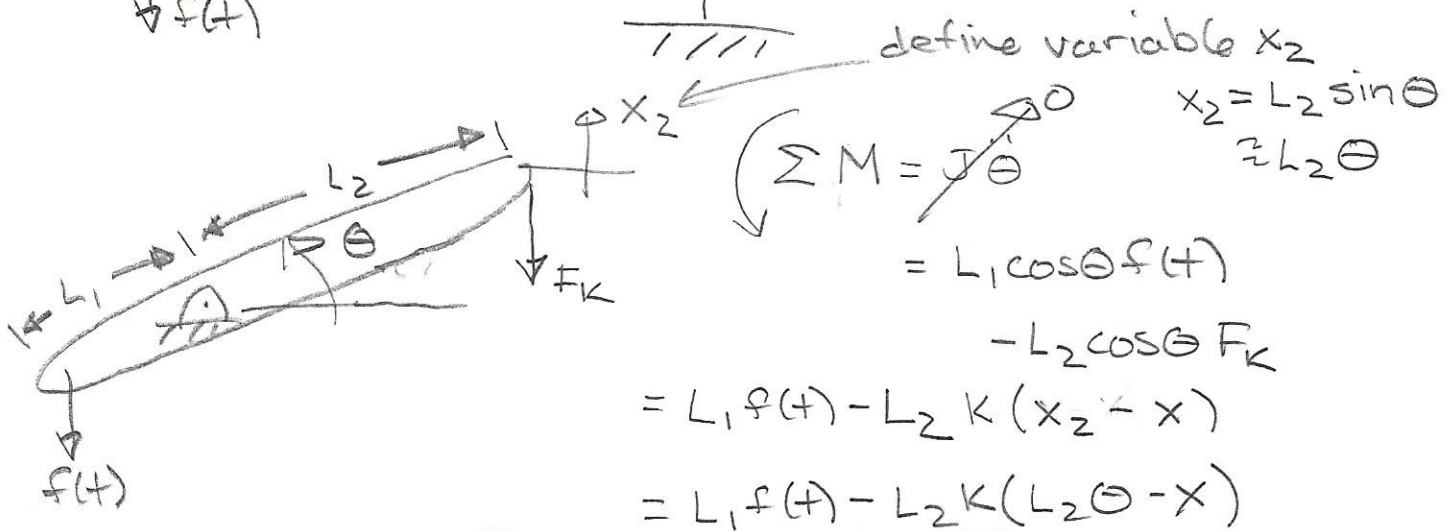 f(t)
define variable x₂
x₂
x₂ = L₂ sinθ
≅ L₂ θ
ΣM = Jθ̈ 0
L₂
θ
L₁
F_K
= L₁ cosθ f(t)
- L₂ cosθ F_K
= L₁ f(t) - L₂ K (x₂ - x)
f(t)
= L₁ f(t) - L₂ K (L₂ θ - x)